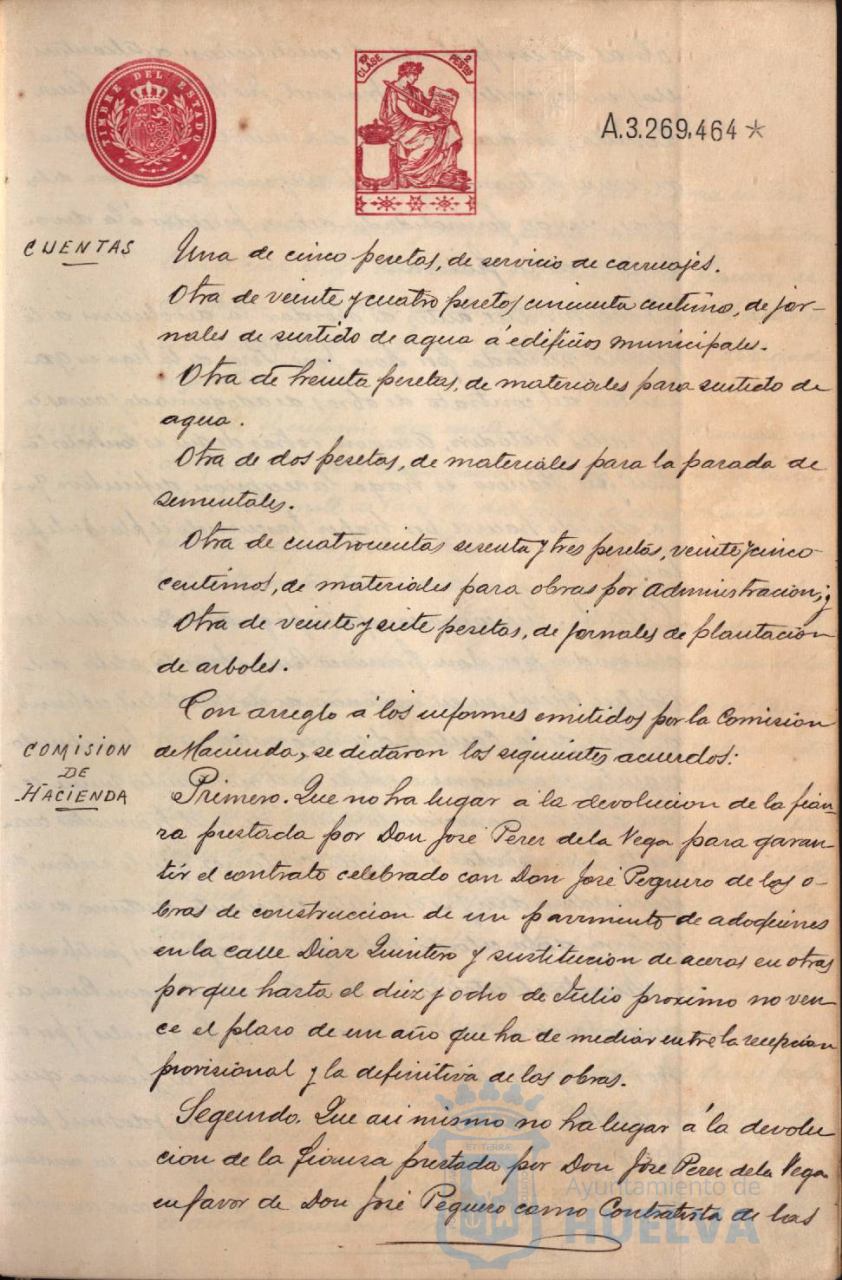 TIMBRE DEL ESTADO
10ª CLASE
2 PESETAS
A.3.269.464 *
CUENTAS
Una de cinco pesetas, de servicio de carruajes.
Otra de veinte y cuatro pesetas cincuenta centimo, de jor-
nales de surtido de agua á edificios municipales.
Otra de treinta pesetas, de materiales para surtido de
agua.
Otra de dos pesetas, de materiales para la parada de
sementales.
Otra de cuatrocientas sesenta y tres pesetas, veinte y cinco
centimos, de materiales para obras por Administracion; y
Otra de veinte y siete pesetas, de jornales de plantación
de arboles.
Con arreglo á los informes emitidos por la Comision
COMISION
DE
HACIENDA
de Hacienda, se dictaron los siguientes acuerdos:
Primero. Que no ha lugar á la devolucion de la fian-
za prestada por Don José Perez de la Vega para garan-
tir el contrato celebrado con Don José Peguero de las o-
bras de construccion de un pavimento de adoquines
en la calle Diaz Quintero y sustitucion de aceras en otras
porque hasta el diez y ocho de Julio proximo no ven-
ce el plazo de un año que ha de mediar entre la recepcion
provisional y la definitiva de las obras.
Segundo. Que asi mismo no ha lugar á la devolu
cion de la fianza prestada por Don José Perez de la Vega
en favor de Don José Peguero como Contratista de las
Ayuntamiento de
HUELVA